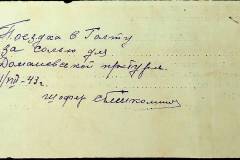 Поездка в Голту
за солью для
Доманевской прктуры.
1/VII-43г.
шофер